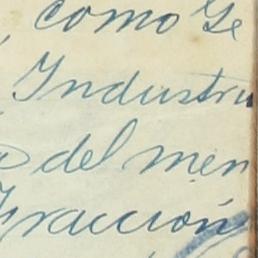 , como Ge
Industru
o del men
Fracción